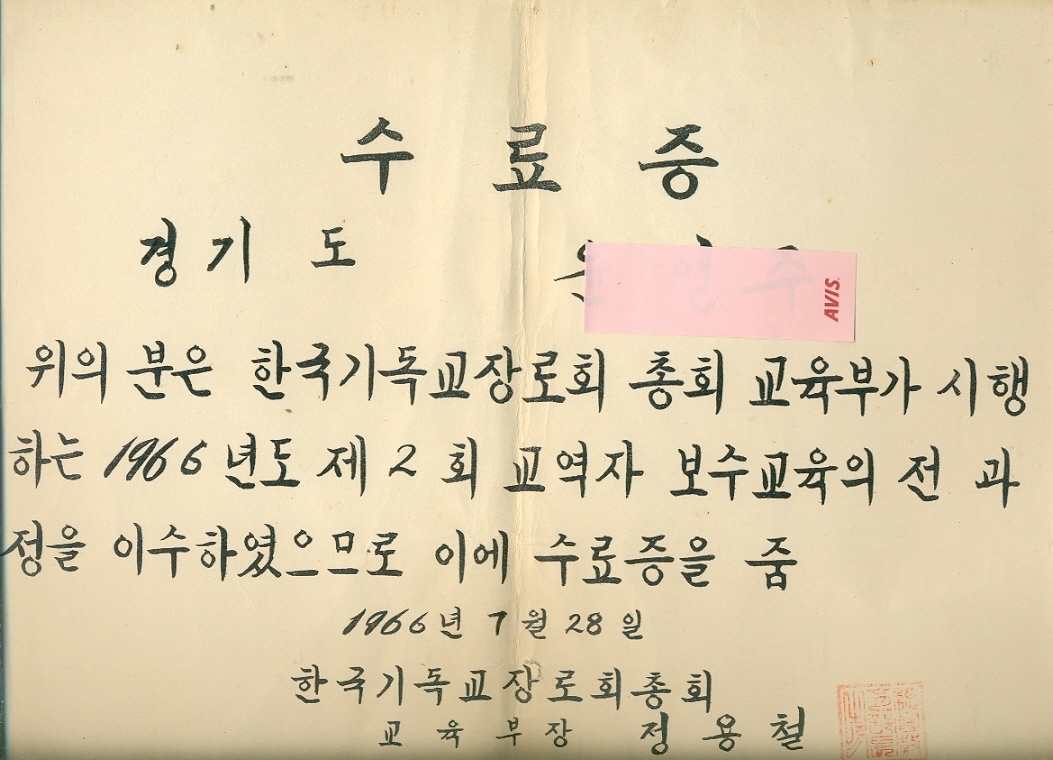 수료증
경기도
AVIS
위의 분은 한국기독교장로회 총회 교육부가 시행
하는 1966년도 제2회 교역자 보수교육의 전 과
정을 이수하였으므로 이에 수료증을 줌
1966년 7월 28일
한국기독교장로회총회
교육부장 정용철